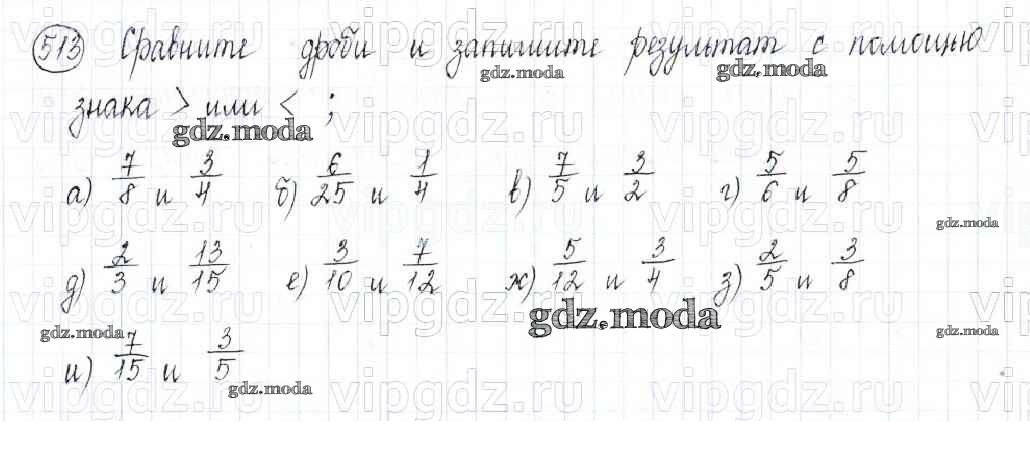 513 Сравните дроби и запишите результат с помощью
знака > или < ;
а) 7/8 и 3/4 б) 6/25 и 1/4 в) 7/5 и 3/2 г) 5/6 и 5/8
д) 2/3 и 13/15 е) 3/10 и 7/12 ж) 5/12 и 3/4 з) 2/5 и 3/8
и) 7/15 и 3/5
gdz.moda
gdz.moda
gdz.moda
gdz.moda
gdz.moda
gdz.moda
gdz.moda
gdz.moda
vipgdz.ru